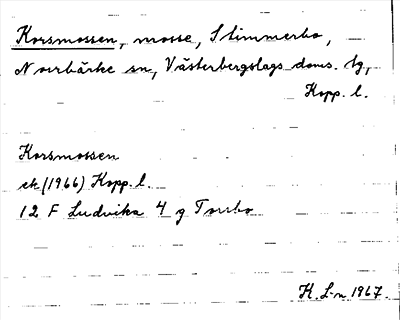 Korsmossen, mosse, Stimmerbo,
Norrbärke sn, Västerbergslags doms. tg,
Kopp. l.
Korsmossen
ek (1966) Kopp. l.
12 F Ludvika 4 g Torrbo
K. L-n 1967.